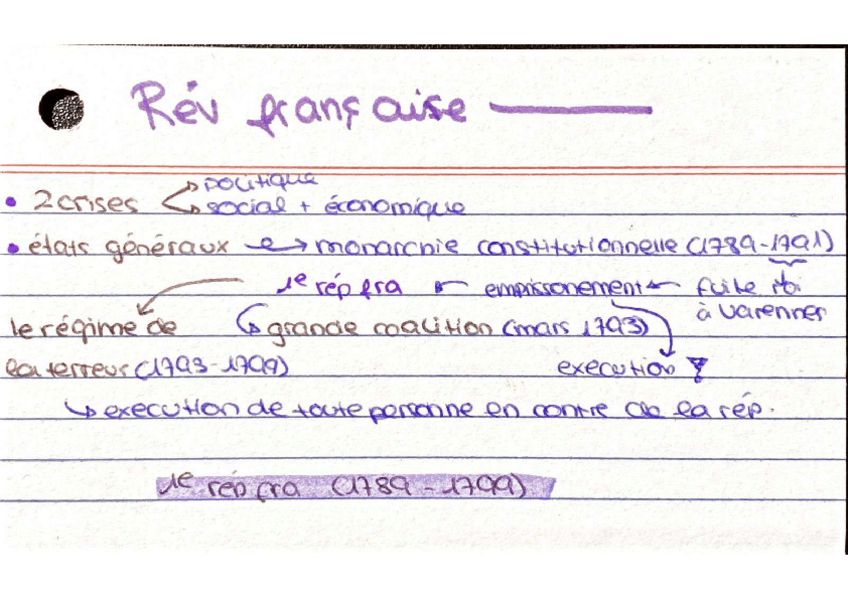 Rév française
politique
• 2 crises
social + économique
• états généraux → monarchie constitutionnelle (1789-1791)
1e rép fra ← empissonement ← fuite roi
à Varenner
le régime de ↳ grande coalition (mars 1793)
la terreur (1793-1799) execution
↳ execution de toute personne en contre de la rép.
1e rép fra (1789-1799)